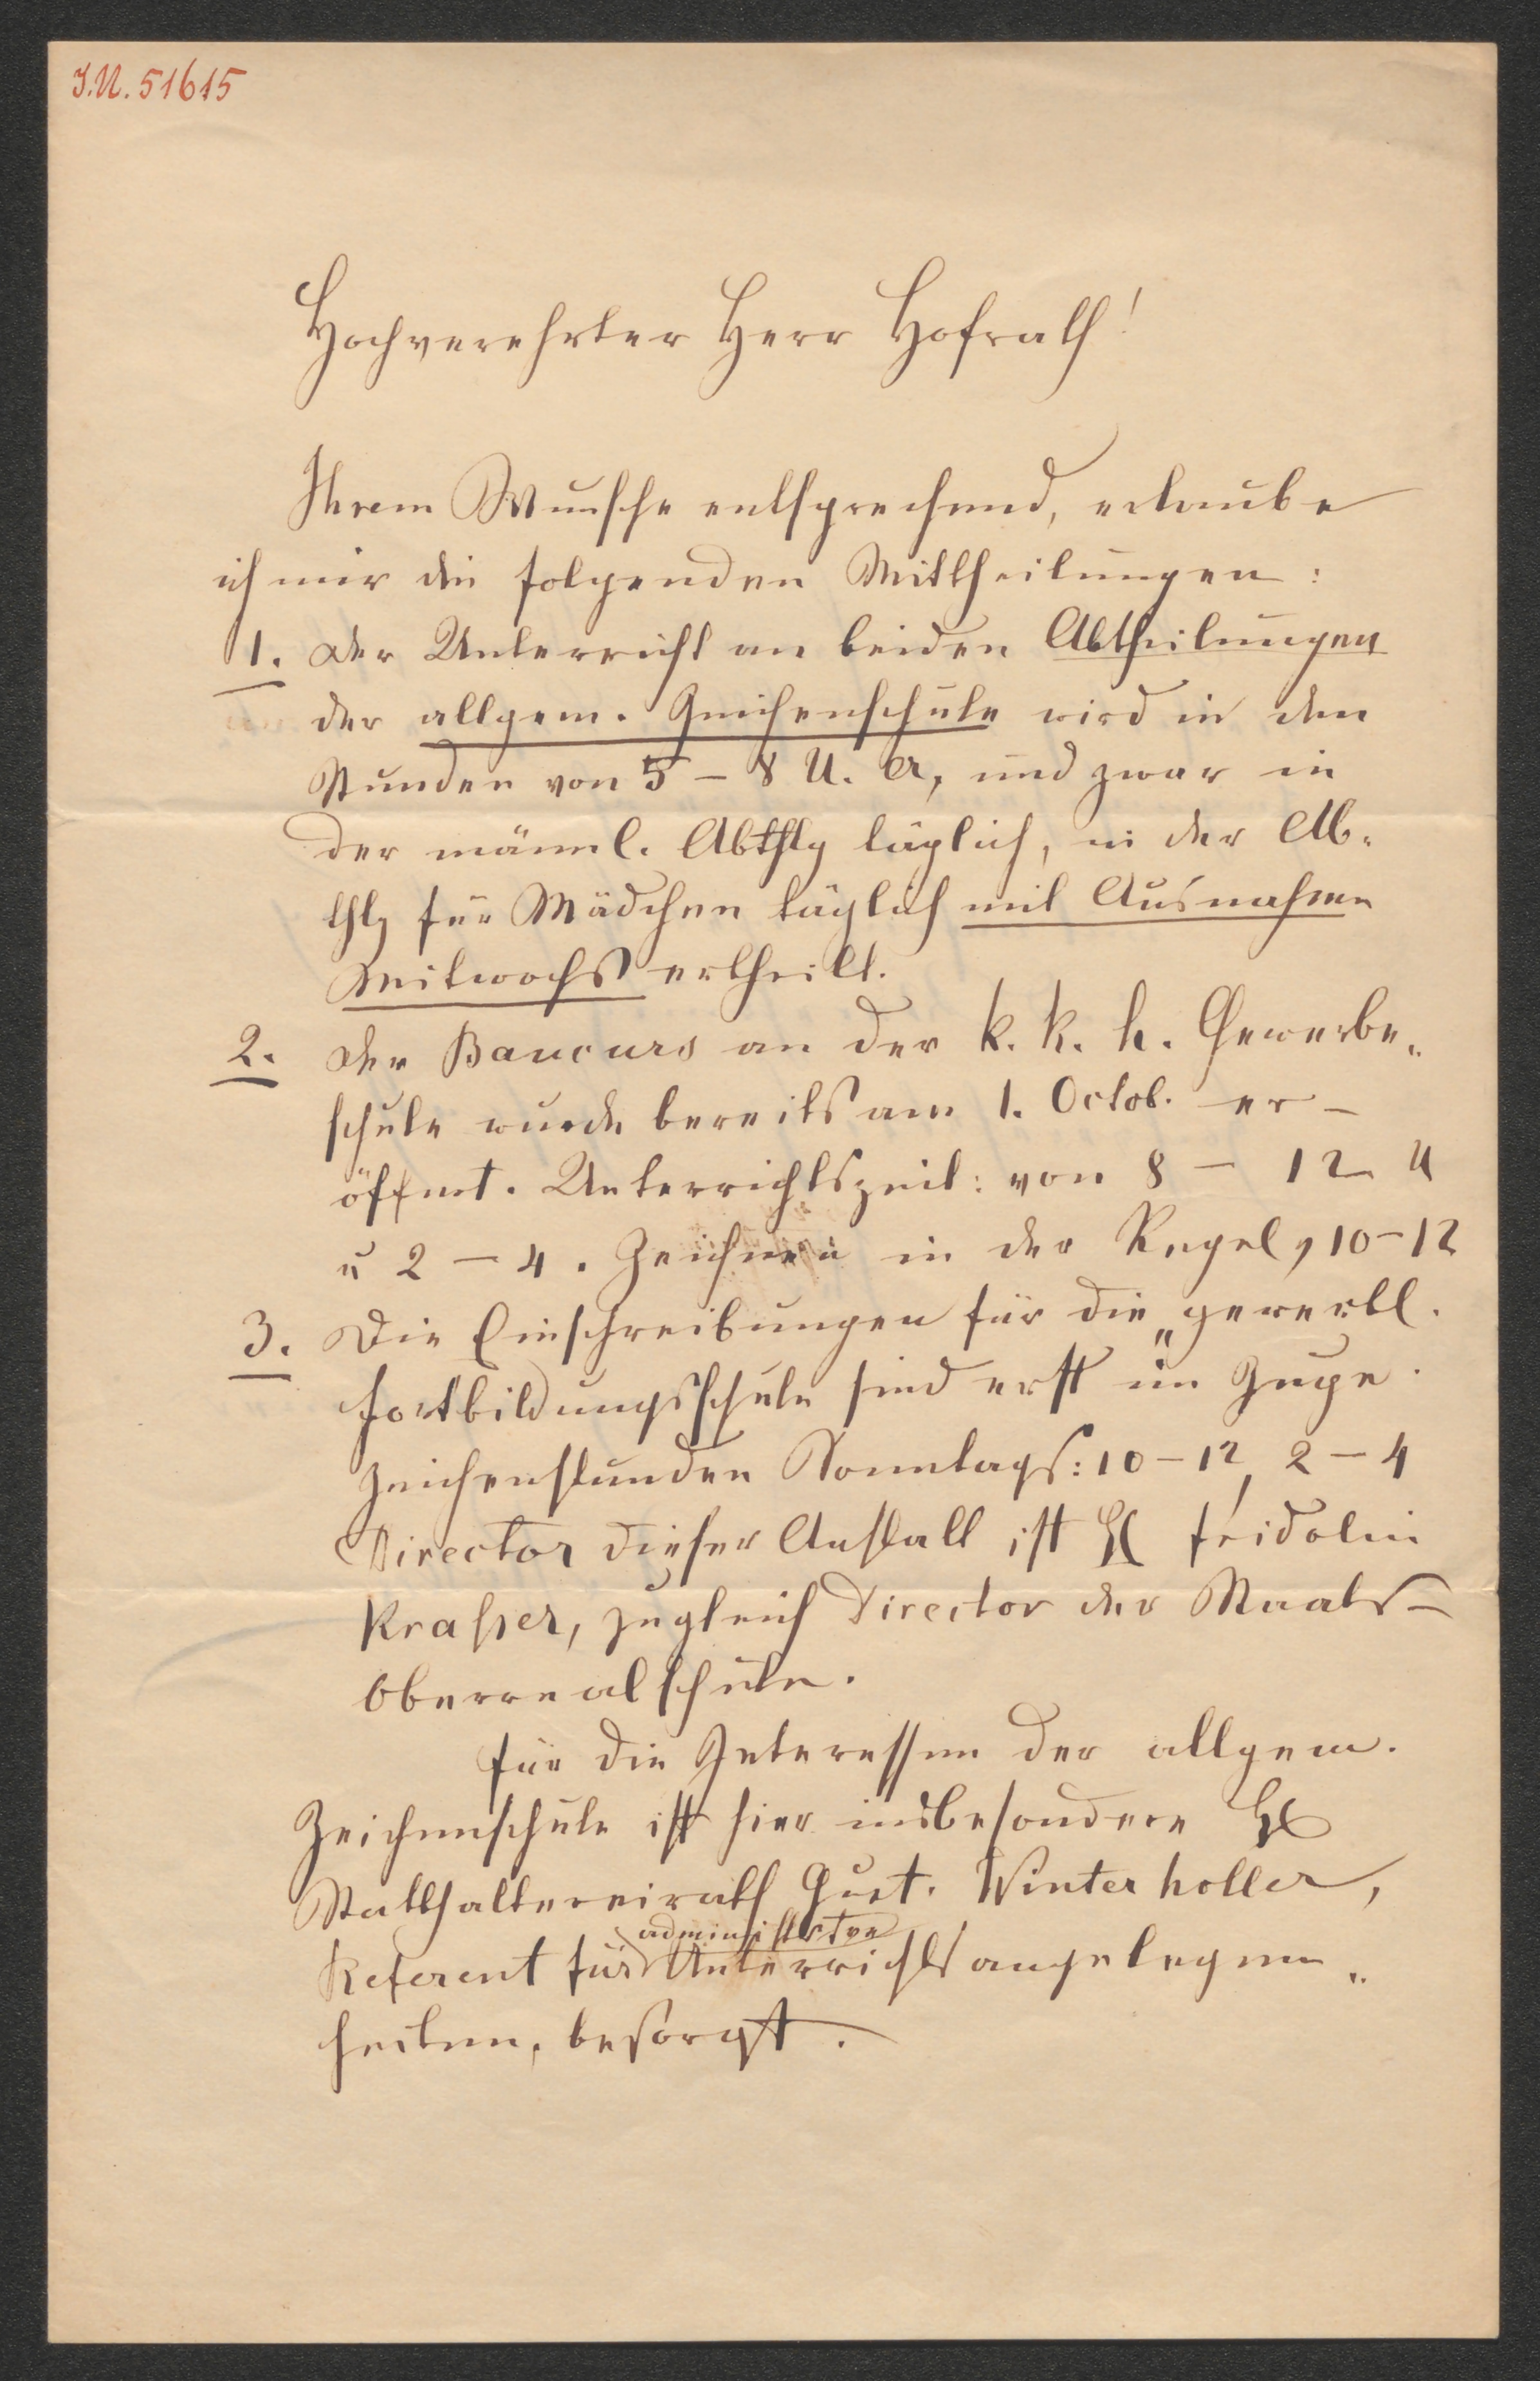 J.N. 51615
Hochverehrter Herr Hofrath!
Ihrem Wunsche entsprechend, erlaube
ich mir die folgenden Mittheilungen:
1. Der Unterricht an beiden Abtheilungen
der allgem. Zeichenschule wird in den
Stunden von 5 – 8 U. A, und zwar in
der männl. Abthlg täglich, in der Ab-
thlg für Mädchen täglich mit Ausnahme
Mitwochs ertheilt.
2. Der Baucurs an der k. k. h. Gewerbe-
schule wurde bereits am 1. Octob. er-
öffnet. Unterrichtszeit: von 8 – 12 U
u 2 – 4. Zeichnen in der Regel, 10–12
3. Die Einschreibungen für die „gewerbl.
Fortbildungsschule sind erst im Zuge.
Zeichenstunden Sonntags: 10–12, 2–4
Director dieser Anstalt ist H Fridolin
Krasser, zugleich Director der Staats-
Oberrealschule.
Für die Interessen der allgem.
Zeichenschule ist hier insbesondere H
Statthaltereirath Gust. Winterholler,
administrtve
Referent für Unterrichtsangelegen-
heiten, besorgt.